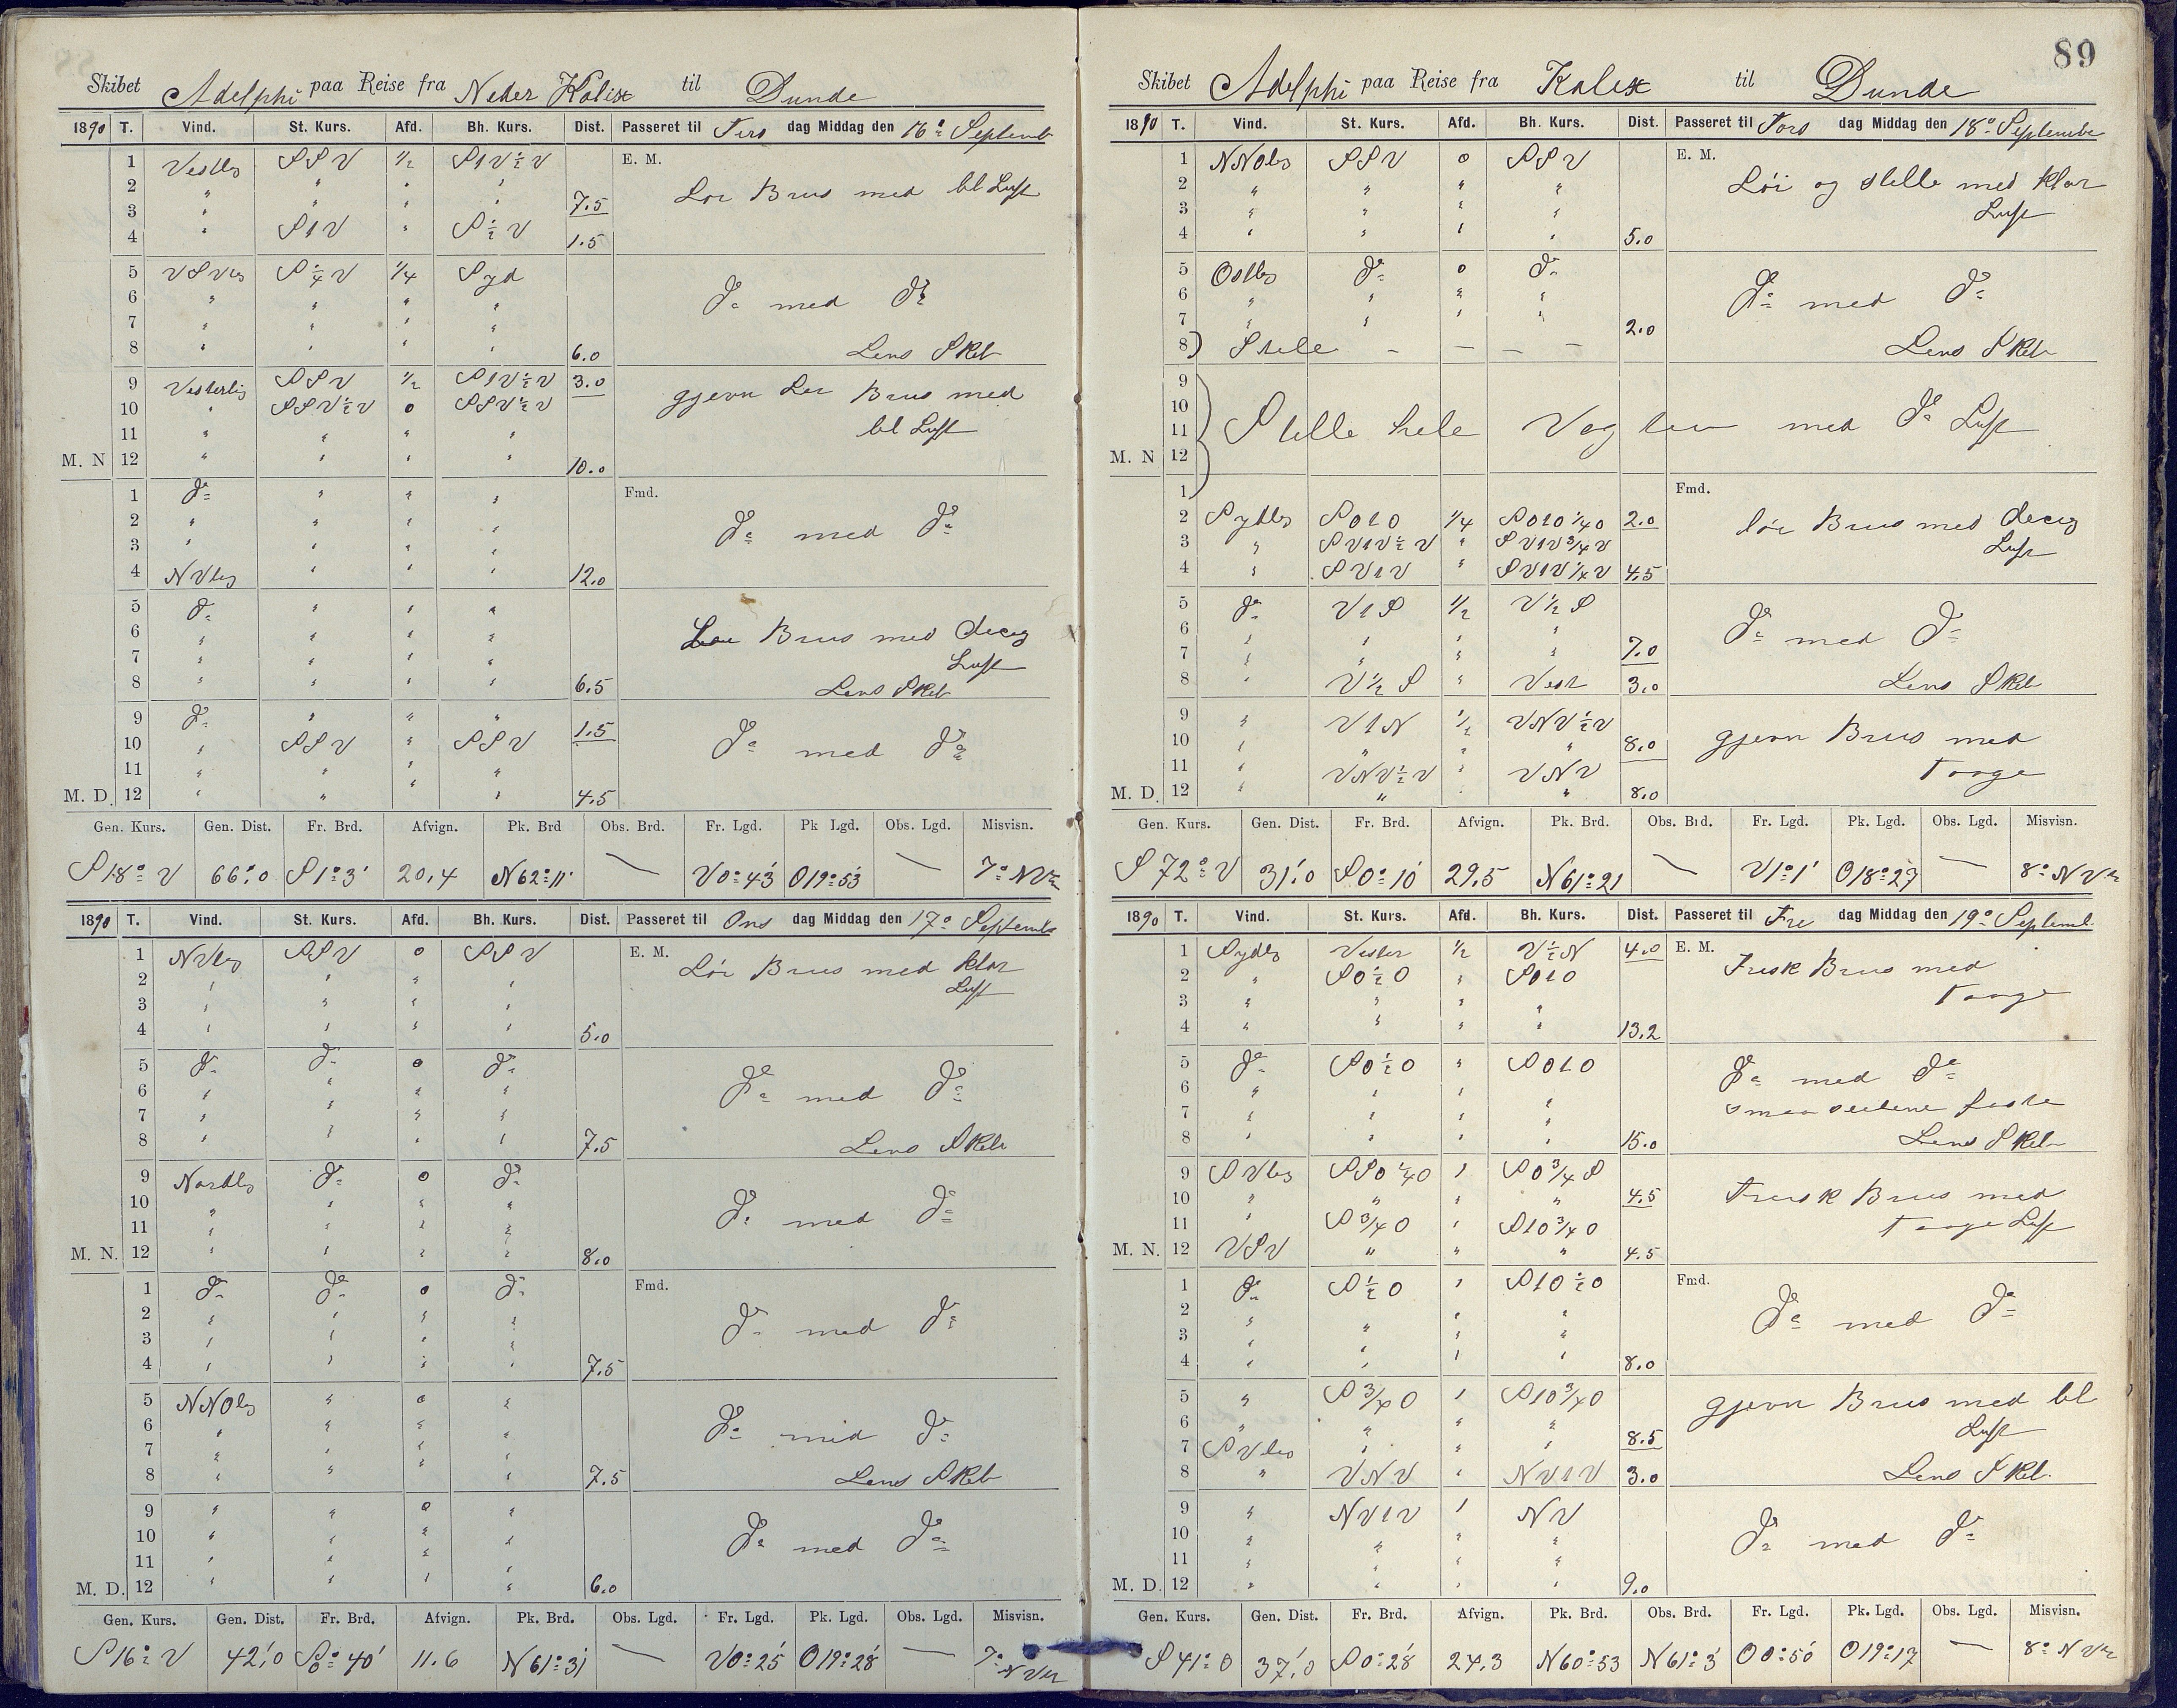 89
Skibet Adelphi paa Reise fra Neder Kalix til Dunde
1890 T. Vind. St. Kurs. Afd. Bh. Kurs. Dist. Passeret til Tirs dag Middag den 16de Septemb
1 Vestlig SSV 1/2 S1V½V E. M.
2 " " " "
Lør Bris med bl Luft
3 " " " " 7.5
4 " S1V " S½V 1.5
5 VSVlig S¼V 1/4 Syd
6 " " " "
Do med Do
7 " " " "
8 " " " " 6.0 Lens Skib
9 Vesterlig SSV 1/2 S1V½V 3.0
10 " SSV½V 0 SSV½V
gjevn Lør Bris med
11 " " " "
bl Luft
M. N 12 " " " " 10.0
1 Do " " " Fmd.
2 " " " "
Do med Do
3 " " " "
4 NVlig " " " 12.0
5 Do " " "
6 " " " "
Lør Bris med diсig
7 " " " "
Luft
8 " " " " 6.5 Lens Skib
9 Do " " " 1.5
10 " SSV " SSV
Do med Do
11 " " " "
M. D. 12 " " " " 4.5
Gen. Kurs. Gen. Dist. Fr. Brd. Afvign. Pk. Brd Obs. Brd. Fr. Lgd. Pk Lgd. Obs. Lgd. Misvisn.
S18°V 66'.0 S1°3' 20.4 N62°11' — V0°43' O19°53 — 7° NV
1890 T. Vind. St. Kurs. Afd. Bh. Kurs. Dist. Passeret til Ons dag Middag den 17de Septemb
1 NVlig SSV 0 SSV E. M.
Lør Bris med klar
2 " " " "
Luft
3 " " " "
4 " " " " 5.0
5 Do Do 0 Do
6 " " " "
Do med Do
7 " " " "
8 " " " " 7.5 Lens Skib
9 Nordlig Do 0 Do
10 " " " "
Do med Do
11 " " " "
M. N. 12 " " " " 8.0
1 Do Do 0 Do Fmd.
2 " " " "
Do med Do
3 " " " "
4 " " " " 7.5
5 NNOlig " 0 "
6 " " " "
Do med Do
7 " " " "
8 " " " " 7.5 Lens Skib
9 " " 0 "
10 " " " "
Do med Do
11 " " " "
M. D. 12 " " " " 6.0
Gen. Kurs. Gen. Dist. Fr. Brd. Afvign. Pk. Brd. Obs. Lgd. Fr. Lgd. Pk. Lgd. Obs. Lgd. Misvisn.
S16°V 42'.0 S0°40' 11.6 N61°31' — V0°25' O19°28' — 7° NV
Skibet Adelphi paa Reise fra Kalix til Dunde
1890 T. Vind. St. Kurs. Afd. Bh. Kurs. Dist. Passeret til Tors dag Middag den 18de Septembe
1 NNOlig SSV 0 SSV E. M.
2 " " " "
Løi og stelle med klar
3 " " " "
Luft
4 " " " " 5.0
5 Ostlig Do 0 Do
6 " " " "
Do med Do
7 " " " " 2.0
8 Stele - — — — Lens Skib
9
10
11 Stelle hele Vagten med Do Luft
M. N 12
1 Fmd.
2 Sydlig SO1O 1/4 SO1O¼O 2.0
lør Bris med diсig
3 " SV1V½V " SV1V3/4V
Luft
4 " SV1V " SV1V¼V 4.5
5 Do V1S 1/2 V½S
6 " " " "
Do med Do
7 " " " " 7.0
8 " V½S " Vest 3.0 Lens Skib
9 " V1N 1/2 VNV½V
10 " " " " 8.0
gjevn Bris med
11 " VNV½V " VNV
Taage
M. D. 12 " " " " 8.0
Gen. Kurs. Gen. Dist. Fr. Brd. Afvign. Pk. Brd. Obs. Brd. Fr. Lgd. Pk. Lgd. Obs. Lgd. Misvisn.
S72°V 31'.0 S0°10' 29.5 N61°21 — V1°1' O18°27 — 8° NV
1890 T. Vind. St. Kurs. Afd. Bh. Kurs. Dist. Passeret til Fre dag Middag den 19de Septemb.
1 Sydlig Vester 1/2 V½N 4.0 E. M.
Frisk Bris med
2 " SO½O " SO1O
Taage
3 " " " "
4 " " " " 13.2
5 Do SO½O " SO1O
Do med Do
6 " " " "
7 " " " "
8 " " " " 15.0 Lens Skib
9 SVlig SSO¼O " SO3/4S
10 " " " " 4.5
Frisk Bris med
11 " S3/4O " S1O3/4O
Taage Luft
M. N. 12 VSV " " " 4.5
1 Do S½O " S1O½O Fmd.
2 " " " "
Do med Do
3 " " " "
4 " " " " 8.0
5 " S3/4O " S1O3/4O
gjevn Bris med bl
6 " " " " 8.5
Luft
7 SVlig " " "
8 " VNV " NV1V 3.0 Lens Skib.
9 " NV1V " NV
10 " " " "
Do med Do
11 " " " "
M. D. 12 " " " " 9.0
Gen. Kurs. Gen. Dist. Fr. Brd. Afvign. Pk. Brd. Obs. Brd. Fr. Lgd. Pk. Lgd. Obs. Lgd. Misvisn.
S41°O 37'.0 S0°28' 24.3 N60°53 N61°3' O0°50' O19°17 — 8° NV